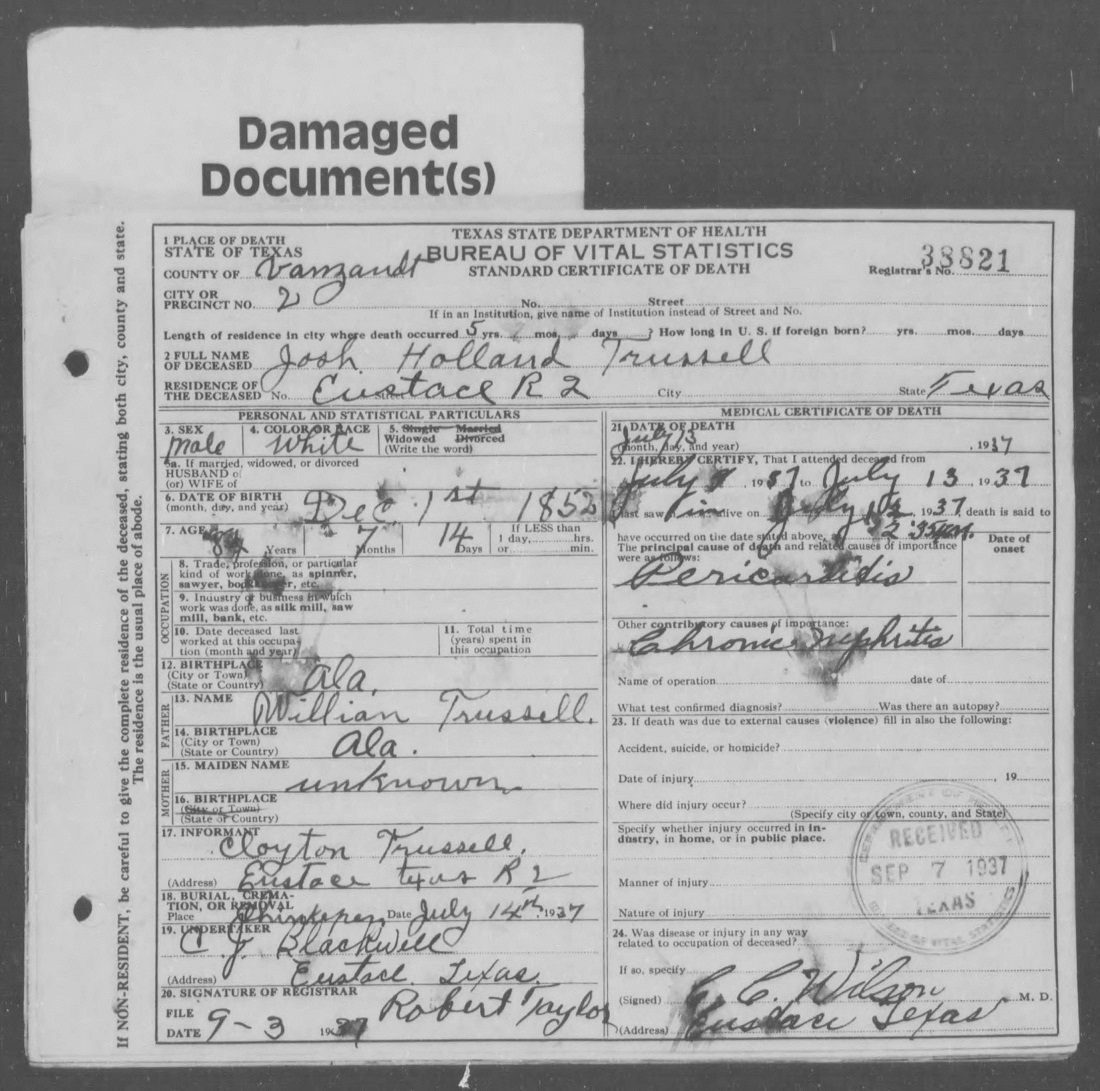 Damaged
Document(s)
If NON-RESIDENT, be careful to give the complete residence of the deceased, stating both city, county and state.
The residence is the usual place of abode.
TEXAS STATE DEPARTMENT OF HEALTH
BUREAU OF VITAL STATISTICS
STANDARD CERTIFICATE OF DEATH
Registrar's No. 38821
1 PLACE OF DEATH
STATE OF TEXAS
COUNTY OF Vanzandt
CITY OR
PRECINCT NO. 2 No. Street
If in an Institution, give name of Institution instead of Street and No.
Length of residence in city where death occurred 5 yrs. mos. days ? How long in U. S. if foreign born? yrs. mos. days
2 FULL NAME
OF DECEASED Josh Holland Trussell
RESIDENCE OF
THE DECEASED No. Eustace R 2 City State Texas
PERSONAL AND STATISTICAL PARTICULARS
3. SEX
Male
4. COLOR OR RACE
White
5. Single Married
Widowed Divorced
(Write the word)
6a. If married, widowed, or divorced
HUSBAND o
(or) WIFE of
6. DATE OF BIRTH
(month, day, and year) Dec. 1st 1852
7. AGE 84 Years 7 Months 14 Days
If LESS than
1 day, hrs.
or min.
OCCUPATION
8. Trade, profession, or particular
kind of work done, as spinner,
sawyer, bookkeeper, etc.
9. Industry or business in which
work was done, as silk mill, saw
mill, bank, etc.
10. Date deceased last
worked at this occupa-
tion (month and year)
11. Total time
(years) spent in
this occupation
12. BIRTHPLACE
(City or Town)
(State or Country) Ala.
FATHER
13. NAME
Willian Trussell.
14. BIRTHPLACE
(City or Town)
(State or Country) Ala.
MOTHER
15. MAIDEN NAME
unknown
16. BIRTHPLACE
(City or Town)
(State or Country)
17. INFORMANT
Cloyton Trussell.
(Address) Eustace texas R 2
18. BURIAL, CREMA-
TION, OR REMOVAL
Place Date July 14th 1937
19. UNDERTAKER
C J. Blackwell
(Address) Eustace. Texas.
20. SIGNATURE OF REGISTRAR
Robert Taylor
FILE
DATE 9-3 1937
MEDICAL CERTIFICATE OF DEATH
21. DATE OF DEATH
July 13
(month, day, and year) , 1937
22. I HEREBY CERTIFY, That I attended deceased from
July , 1937 to July 13, 1937
last saw him alive on July , 1937 death is said to
have occurred on the date stated above, at
The principal cause of death and related causes of importance
were as follows:
Date of
onset
Pericarditis
Other contributory causes of importance:
Chronic Nephritis
Name of operation date of
What test confirmed diagnosis? Was there an autopsy?
23. If death was due to external causes (violence) fill in also the following:
Accident, suicide, or homicide?
Date of injury , 19
Where did injury occur?
(Specify city or town, county, and State)
Specify whether injury occurred in In-
dustry, in home, or in public place.
Manner of injury
Nature of injury
24. Was disease or injury in any way
related to occupation of deceased?
If so, specify
(Signed) C. C. Wilson M. D.
(Address) Eustace Texas
RECEIVED
SEP 7 1937
TEXAS